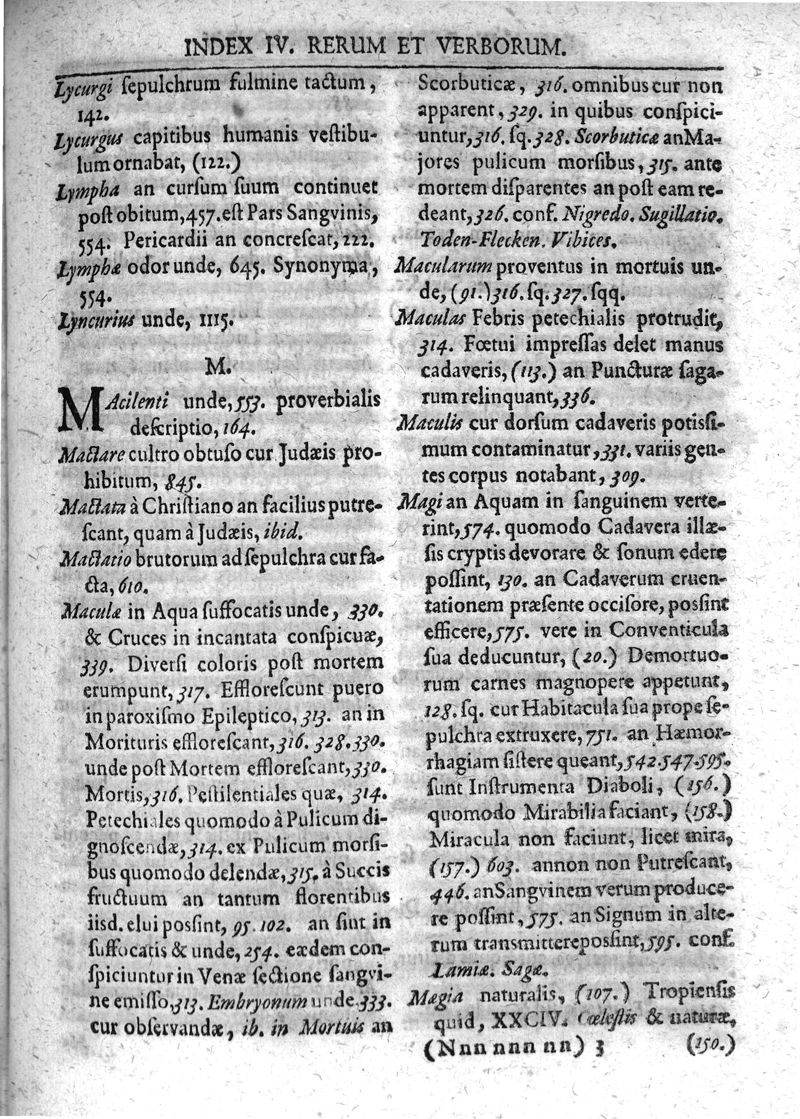 INDEX IV. RERUM ET VERBORUM.
Lycurgi ſepulchrum fulmine tactum,
142.
Lycurgus capitibus humanis veſtibu-
lum ornabat, (122.)
Lympha an curſum ſuum continuet
poſt obitum, 457. eſt Pars Sangvinis,
554. Pericardii an concreſcat, 222.
Lymphæ odor unde, 645. Synonyma,
554.
Lyncurius unde, 1115.
M.
MAcilenti unde, 553. proverbialis
deſcriptio, 164.
Mactare cultro obtuſo cur Judæis pro-
hibitum, 845.
Mactata à Chriſtiano an facilius putre-
ſcant, quam à Judæis, ibid.
Mactatio brutorum ad ſepulchra cur fa-
cta, 610.
Maculæ in Aqua ſuffocatis unde, 330.
& Cruces in incantata conſpicuæ,
339. Diverſi coloris poſt mortem
erumpunt, 317. Effloreſcunt puero
in paroxiſmo Epileptico, 313. an in
Morituris effloreſcant, 316. 328. 330.
unde poſt Mortem effloreſcant, 330.
Mortis, 316. Peſtilentiales quæ, 314.
Petechiales quomodo à Pulicum di-
gnoſcendæ, 314. ex Pulicum morſi-
bus quomodo delendæ, 315. à Succis
fructuum an tantum florentibus
iisd. elui poſſint, 95. 102. an ſint in
ſuffocatis & unde, 254. eædem con-
ſpiciuntur in Venæ ſectione ſangvi-
ne emiſſo, 313. Embryonum unde 333.
cur obſervandæ, ib. in Mortuis an
Scorbuticæ, 316. omnibus cur non
apparent, 329. in quibus conſpici-
untur, 316. ſq. 328. Scorbuticæ an Ma-
jores pulicum morſibus, 315. ante
mortem diſparentes an poſt eam re-
deant, 326. conf. Nigredo. Sugillatio.
Toden-Flecken. Vibices.
Macularum proventus in mortuis un-
de, (91.) 316. ſq. 327. ſqq.
Maculas Febris petechialis protrudit,
314. Fœtui impreſſas delet manus
cadaveris, (113.) an Puncturæ ſaga-
rum relinquant, 336.
Maculis cur dorſum cadaveris potiſſi-
mum contaminatur, 331. variis gen-
tes corpus notabant, 309.
Magi an Aquam in ſanguinem verte-
rint, 574. quomodo Cadavera illæ-
ſis cryptis devorare & ſonum edere
poſſint, 130. an Cadaverum cruen-
tationem præſente occiſore, poſſint
efficere, 575. vere in Conventicula
ſua deducuntur, (20.) Demortuo-
rum carnes magnopere appetunt,
128. ſq. cur Habitacula ſua prope ſe-
pulchra extruxere, 751. an Hæmor-
rhagiam ſiſtere queant, 542. 547. 595.
ſunt Inſtrumenta Diaboli, (156.)
quomodo Mirabilia faciant, (158.)
Miracula non faciunt, licet mira,
(157.) 603. annon non Putreſcant,
446. an Sangvinem verum produce-
re poſſint, 575. an Signum in alte-
rum transmittere poſſint, 595. conf.
Lamiæ. Sagæ.
Magia naturalis, (107.) Tropienſis
quid, XXCIV. Cæleſtis & naturæ,
(Nnn nnn nn) 3 (150.)